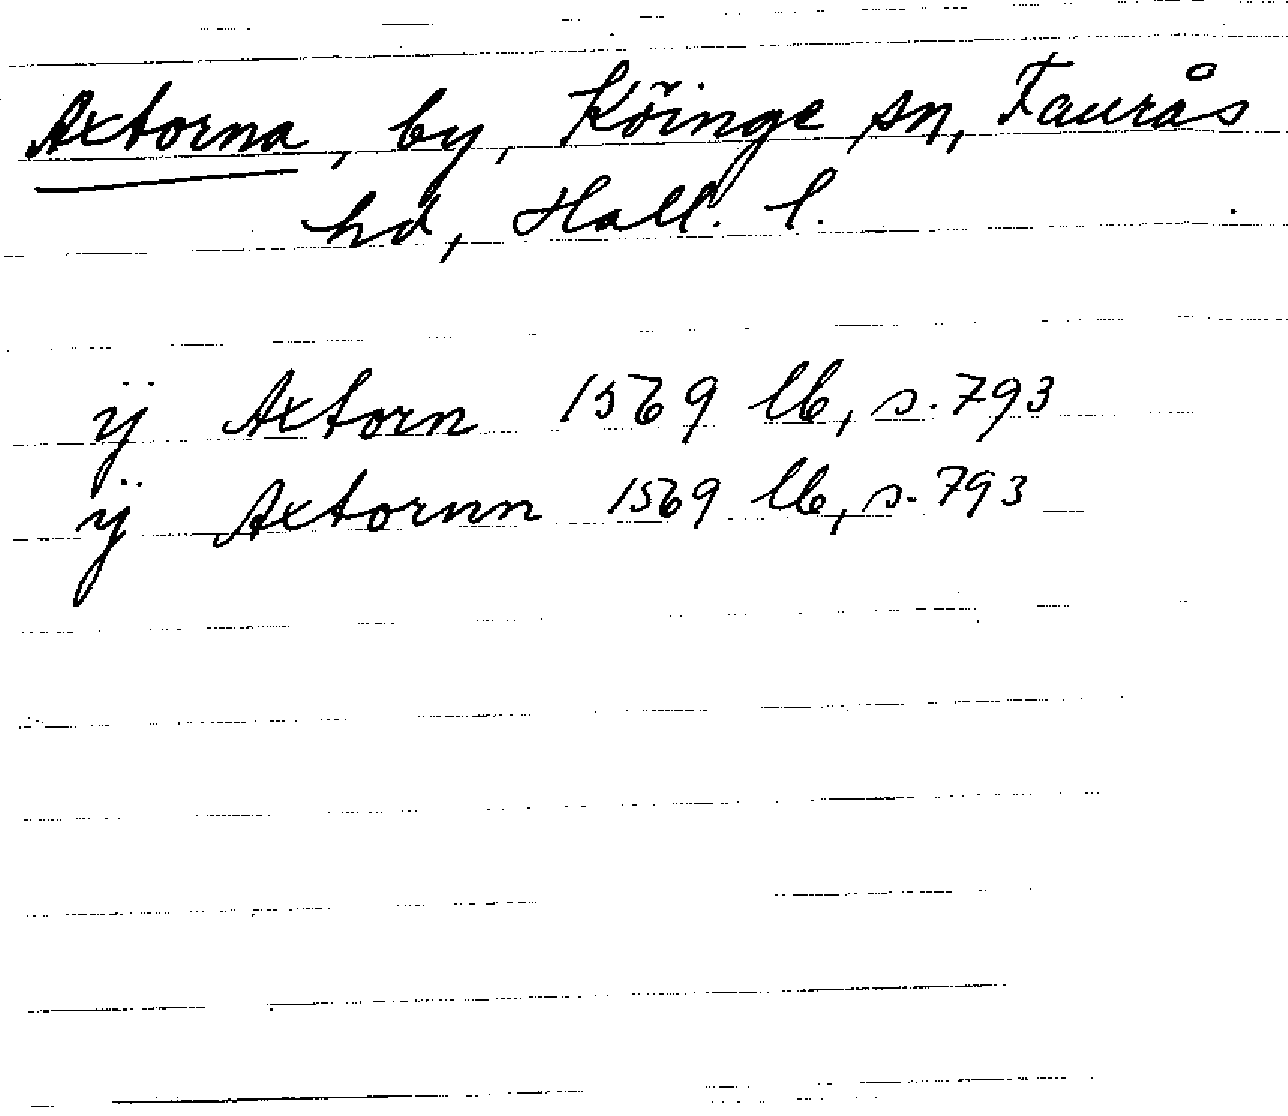 Axtorna, by, Köinge sn, Faurås
hd, Hall. l.
ÿ Axtorn 1569 lb, s. 793
ÿ Axtornn 1569 lb, s. 793